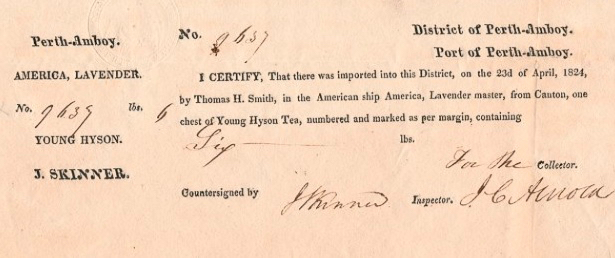 Perth-Amboy.
AMERICA, LAVENDER.
No. 9637 lbs. 6
YOUNG HYSON.
J. SKINNER.
No. 9637
District of Perth-Amboy.
Port of Perth-Amboy.
I CERTIFY, That there was imported into this District, on the 23d of April, 1824,
by Thomas H. Smith, in the American ship America, Lavender master, from Canton, one
chest of Young Hyson Tea, numbered and marked as per margin, containing
Six lbs.
For the Collector.
Countersigned by J Skinner Inspector. J. C. Arnold